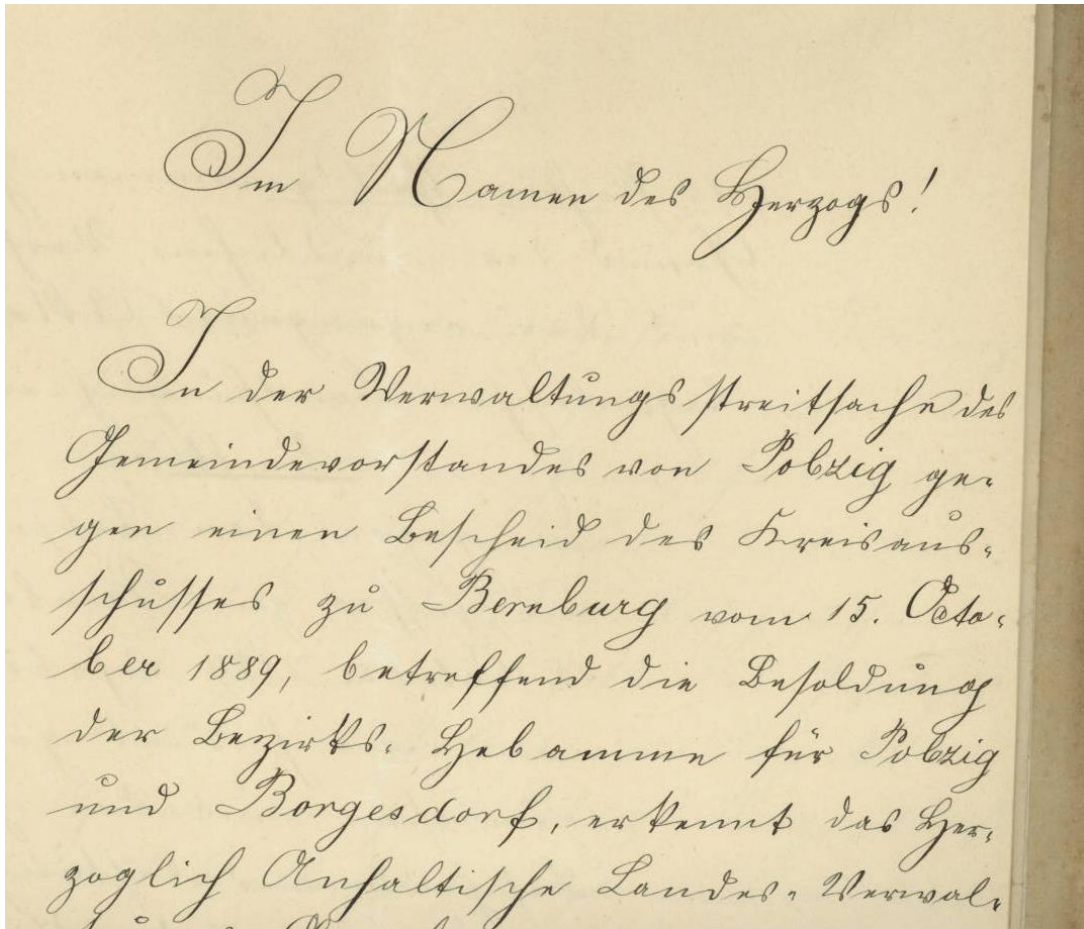 Im Namen des Herzogs!
In der Verwaltungsstreitsache des
Gemeindevorstandes von Pobzig ge-
gen einen Bescheid des Kreisaus-
schusses zu Bernburg vom 15. Octo-
ber 1889, betreffend die Besoldung
der Bezirks-Hebamme für Pobzig
und Borgesdorf, erkennt das Her-
zoglich Anhaltische Landes-Verwal-